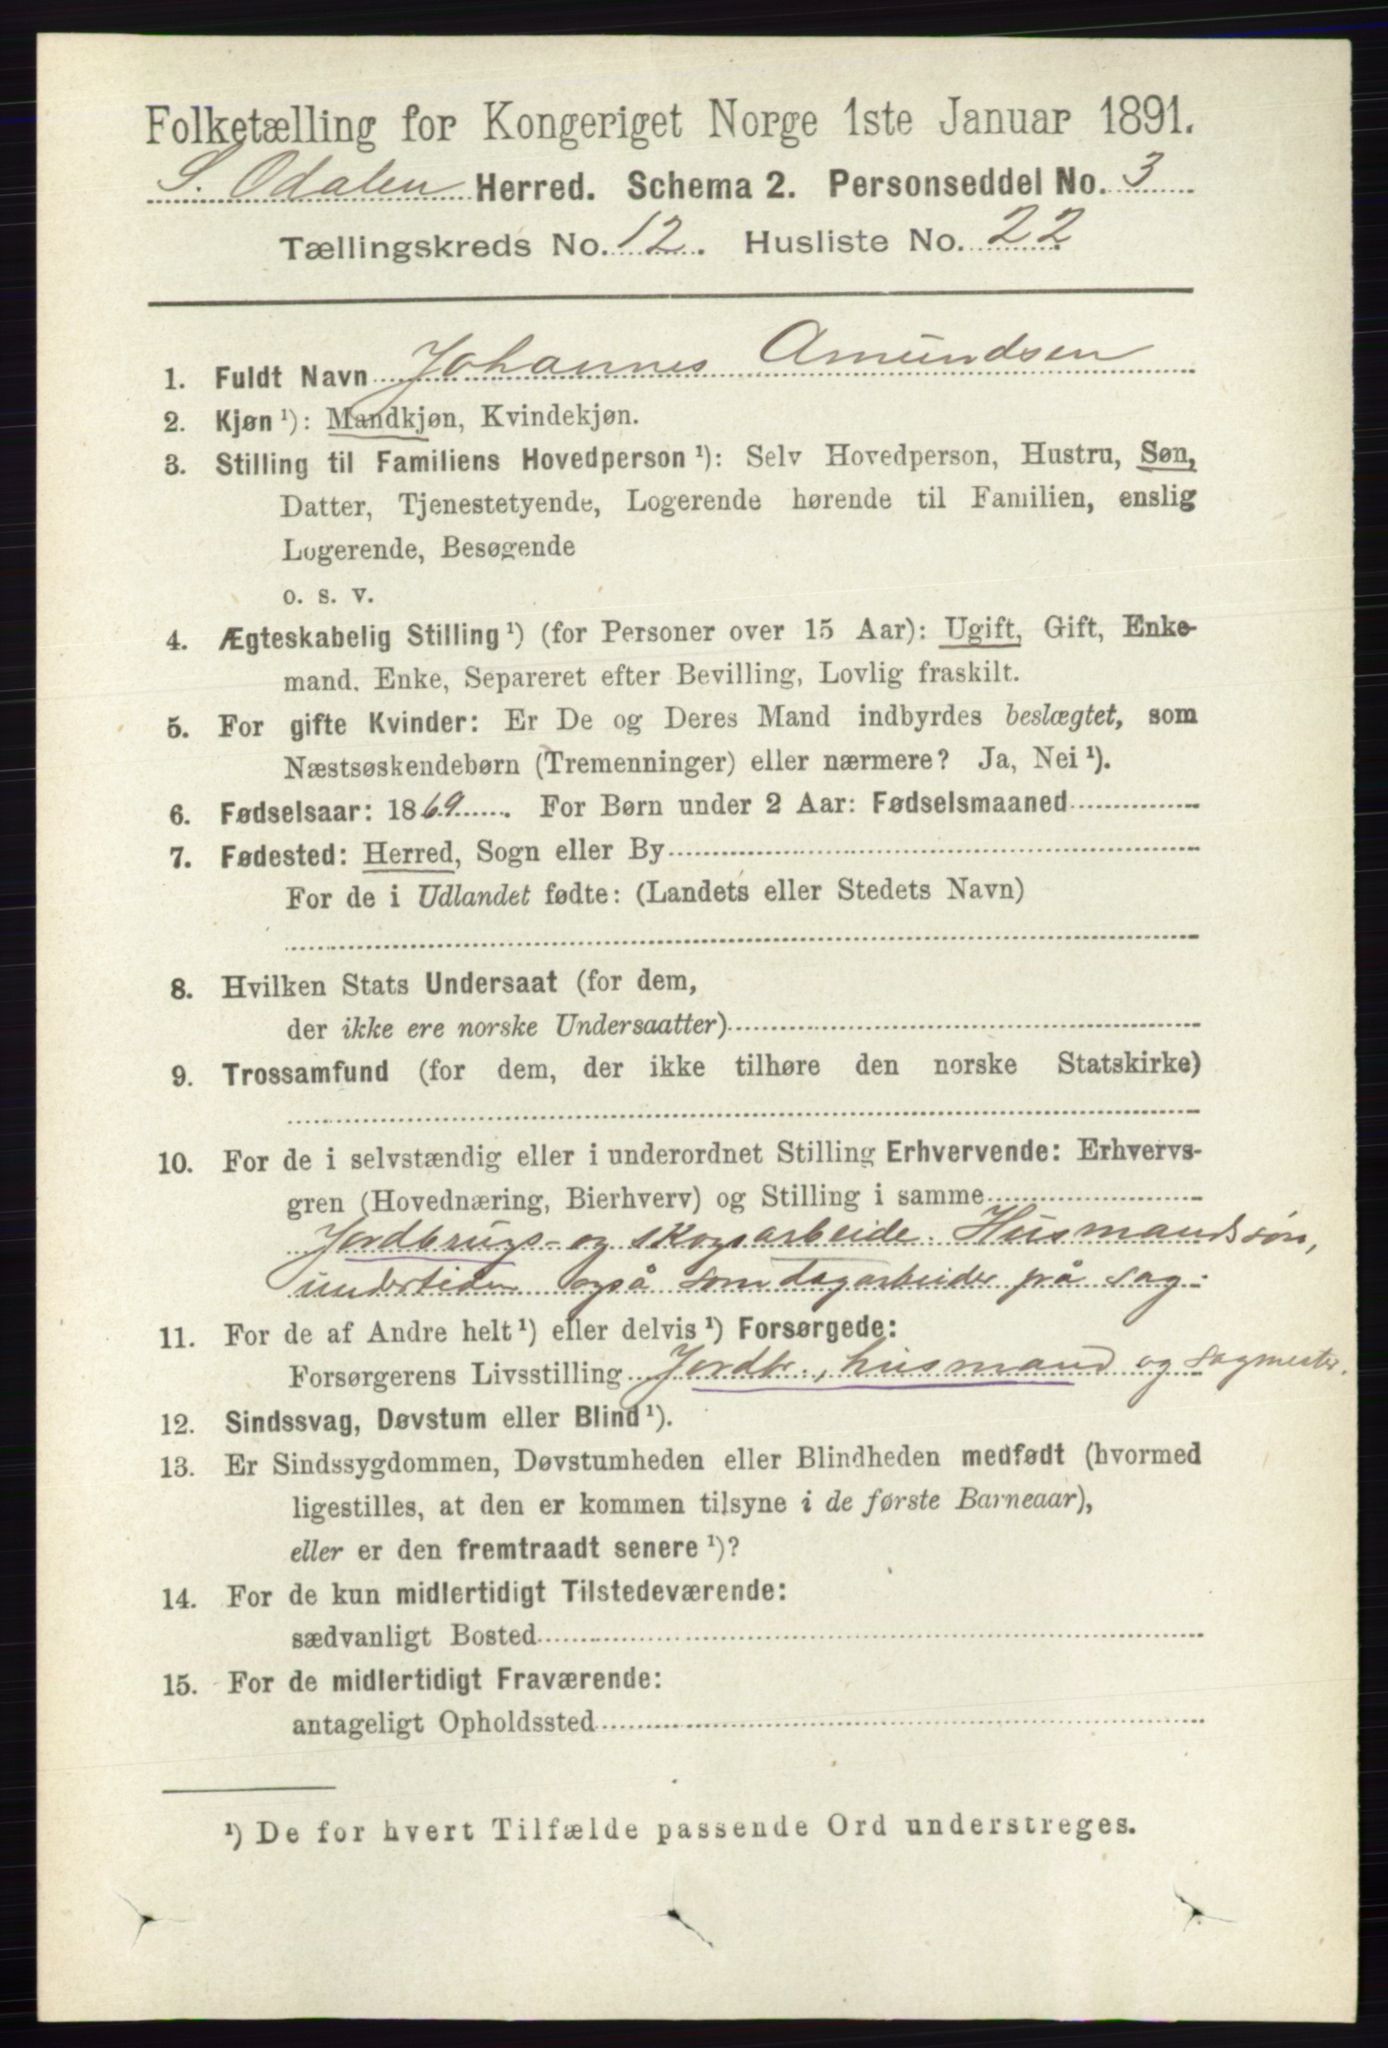 Folketælling for Kongeriget Norge 1ste Januar 1891.
S. Odalen Herred. Schema 2. Personseddel No. 3
Tællingskreds No. 12. Husliste No. 22
1. Fuldt Navn Johannes Amundsen
2. Kjøn ¹): Mandkjøn, Kvindekjøn.
3. Stilling til Familiens Hovedperson ¹): Selv Hovedperson, Hustru, Søn,
Datter, Tjenestetyende, Logerende hørende til Familien, enslig
Logerende, Besøgende
o. s. v.
4. Ægteskabelig Stilling ¹) (for Personer over 15 Aar): Ugift, Gift, Enke-
mand, Enke, Separeret efter Bevilling, Lovlig fraskilt.
5. For gifte Kvinder: Er De og Deres Mand indbyrdes beslægtet, som
Næstsøskendebørn (Tremenninger) eller nærmere? Ja, Nei ¹).
6. Fødselsaar: 1869. For Børn under 2 Aar: Fødselsmaaned
7. Fødested: Herred, Sogn eller By
For de i Udlandet fødte: (Landets eller Stedets Navn)
8. Hvilken Stats Undersaat (for dem,
der ikke ere norske Undersaatter)
9. Trossamfund (for dem, der ikke tilhøre den norske Statskirke)
10. For de i selvstændig eller i underordnet Stilling Erhvervende: Erhvervs-
gren (Hovednæring, Bierhverv) og Stilling i samme
Jordbrugs- og skogsarbeide. Husmandssøn,
undertiden også som dagarbeider på sag.
11. For de af Andre helt ¹) eller delvis ¹) Forsørgede:
Forsørgerens Livsstilling Jordbr., husmand og sagmester.
12. Sindssvag, Døvstum eller Blind ¹).
13. Er Sindssygdommen, Døvstumheden eller Blindheden medfødt (hvormed
ligestilles, at den er kommen tilsyne i de første Barneaar),
eller er den fremtraadt senere ¹)?
14. For de kun midlertidigt Tilstedeværende:
sædvanligt Bosted
15. For de midlertidigt Fraværende:
antageligt Opholdssted
¹) De for hvert Tilfælde passende Ord understreges.